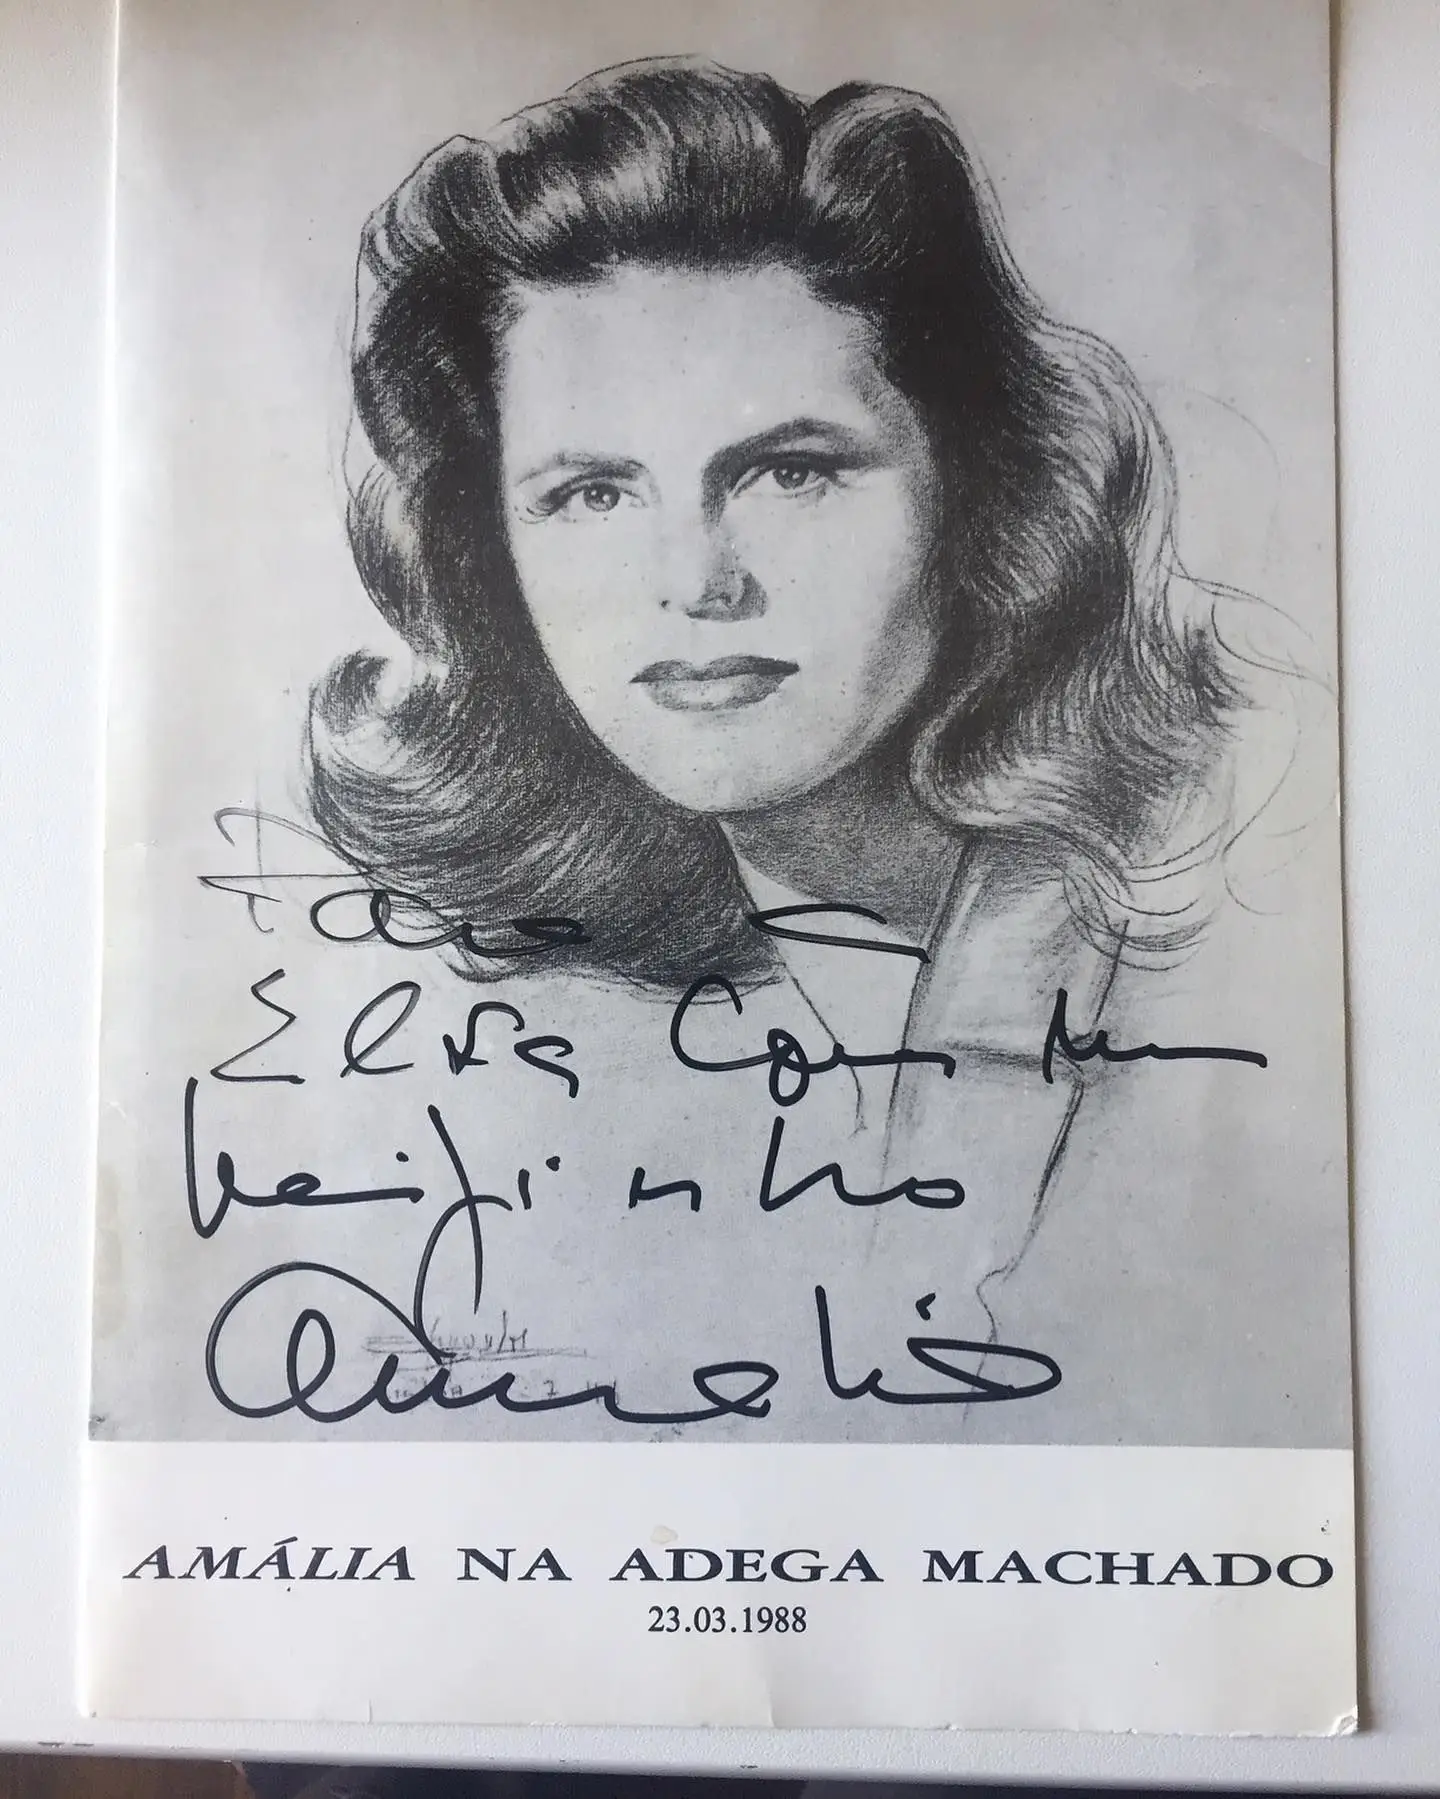 Para a
Elsa Com um
beijinho
Amália
AMÁLIA NA ADEGA MACHADO
23.03.1988